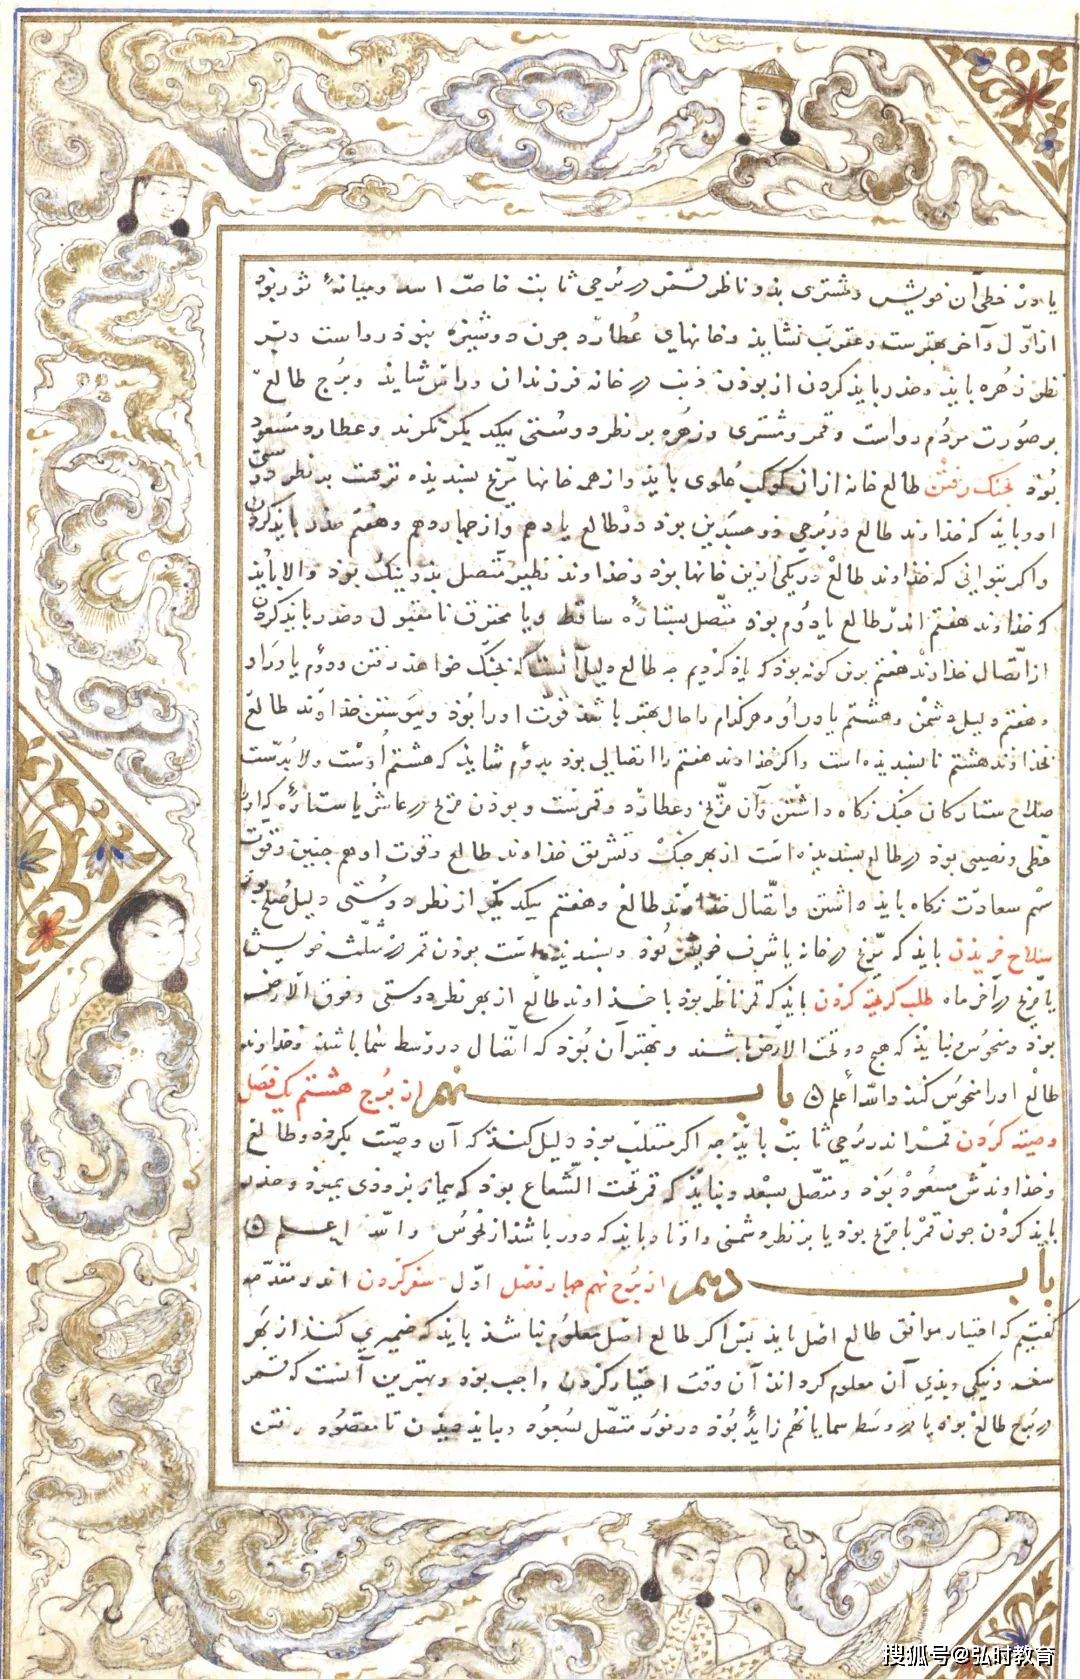 یا در حظی آن خویش و مشتری بذو ناظر قمر در برجی ثابت خاصّت اسد و میانهٔ ثور بوذ
از اوّل و آخر بهترست و عقرب نشایذ و خانهای عُطارد چون دوشیزه نبوذ رواست و بر
نظر زهره بایذ و حذر بایذ کردن از بوذن ذنب در خانه فرزندان و را شایذ و برج طالع
بر صُورت مردُم رواست و قمر و مشتری و زهُره بر نظر دوستی بیکدیگر نگرند و عطارد مسعود
بُوذ بجنک رفتن طالع خانه از آن کوکب عُلوی بایذ و از همه خانها مرّیخ بسندیذه ترست بر نظر دوستی
او و بایذ که خذاوند طالع در بُرجی ذو جسَدین بوذ در طالع یا دهم و از چهاردهم و هفتم حذر بایذ کردن
و اکر بتوانی که خذاوند طالع در یکی ازین خانها بوذ و خذاوند نطیر متّصل بذو نیک بوذ و الا بایذ
که خذاوند هفتم اندر طالع یا دوُم بوذ متّصل بستارهٔ ساقط و یا محترق نامقبول و حذر بایذ کردن
از اتّصال خذاوند هفتم بدین کونه بوذ که یاذ کردیم چه طالع دلیل آنست که بجنک خواهذ رفتن و دوُم یاور او
و هفتم دلیل دشمن و هشتم یاور او و هر کدام را حال بهتر باشذ قوّت او را بُوذ و پیَوستن خذاوند طالع
بخذاوند هشتم ناپسندیذه است و اکر خذاوند هفتم را اتّصالی بوذ بدوُم شایذ که هشتم اُوست ولابُدّست
صلاح ستارکان جنک نکاه داشتن و آن مرّیخ و عطارد و قمرست و بوذن مریخ در عاشر یا ستارهٔ که او را
حظّی و نصیبی بوذ در طالع پسندیذه است از بهر جنک و تشریق خذاوند طالع و قوت او هم چنین و قوّت
سهْم سعادت نکاه بایذ داشتن و اتّصال خذاوند طالع و هفتم بیکدیکر از نظر دوُستی دلیل صُلح بوذ
سلاح خریذن بایذ که مرّیخ در خانه یا شرف خویش بُوذ و پسندیذه است بوذن قمر در مثلّثه خویش
یا مریخ در آخر ماه طلب کریخته کردن بایذ که قمر ناظر بوذ با خذاوند طالع از بهر نظر دوستی و فوق الارض
بوذ و منحُوس نبایذ که هیچ دو تحت الارض باشند و بهتر آن بُوذ که اتّصال در وَسط سما باشذ و خذاوند
طالع او را منحُوس کنذ واللّه أعلم ۞ بابــ نهم از برُج هشتم یک فصَل
وصیّته کردن قمر اندر برُجی ثابت بایذ چه اکر منقلب بوذ دلیل کنذ که آن وصیّت بکرذذ و طالع
و خذاوندش مسعُوذ بوَذ و متّصل بسعْد و نبایذ که قمر تحت الشّعاع بوذ که بیمار بزوذی بمیرذ و حذر
بایذ کردن چون قمر با مریخ بوذ یا بر نظر دشمنی و اوتاد بایذ که دور باشذ از نحُوس و اللّه اعلم ۞
بابــ دهم از برج نهم چهار فصَل اوّل سفر کردن اندر مقدّمه
کفتیم که اختیار موافق طالع اصَل بایذ پس اکر طالع اصل معلوُم نباشذ بایذ که ضمیری کنند از بهر
سفر و نیکی و بذی آن معلوم کرداننذ آن وقت اختیار کردن واجب بوذ و بهترین آنست که قمر
در برَج طالع بوذ یا در وسَط سما یا نهُم زایدُ بوذ در نوُر متّصل بسُعوُد و بباید چیذن تا مقصُود رفتن
搜狐号@弘时教育